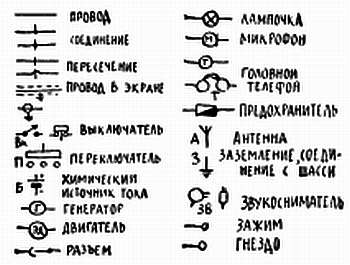 ПРОВОД
СОЕДИНЕНИЕ
ПЕРЕСЕЧЕНИЕ
ПРОВОД В ЭКРАНЕ
Вк ВЫКЛЮЧАТЕЛЬ
П ПЕРЕКЛЮЧАТЕЛЬ
Б ХИМИЧЕСКИЙ
ИСТОЧНИК ТОКА
Г ГЕНЕРАТОР
ЭД ДВИГАТЕЛЬ
РАЗЪЕМ
ЛАМПОЧКА
М МИКРОФОН
Т
ГОЛОВНОЙ
ТЕЛЕФОН
ПРЕДОХРАНИТЕЛЬ
А АНТЕННА
З ЗАЗЕМЛЕНИЕ, СОЕДИ-
НЕНИЕ С ШАССИ
ЗВ ЗВУКОСНИМАТЕЛЬ
ЗАЖИМ
ГНЕЗДО